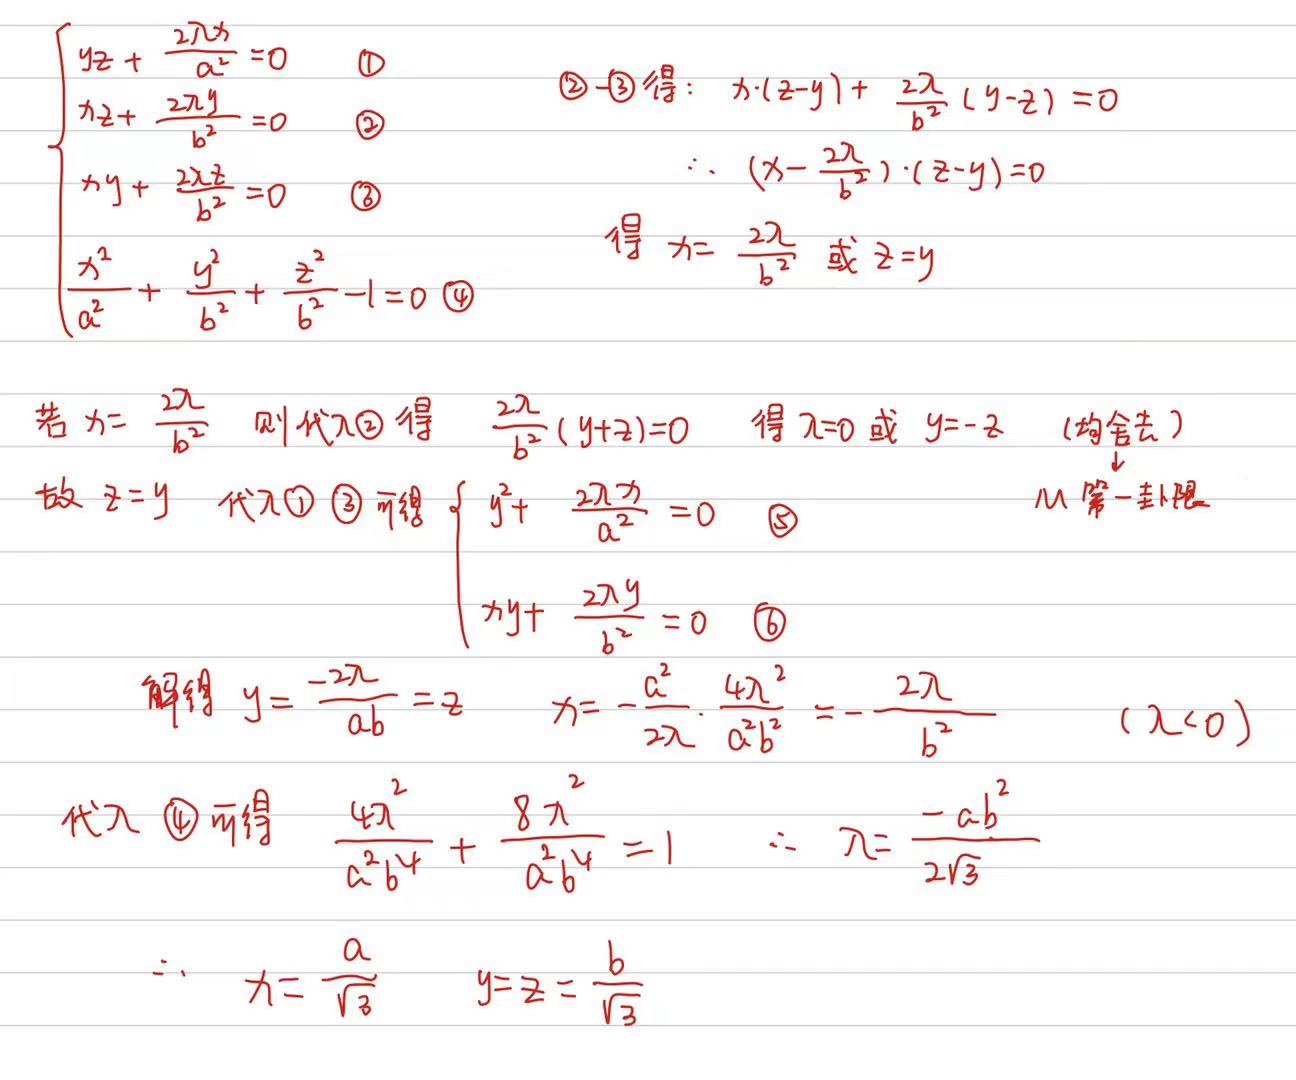 yz + 2λx/a² = 0 ①
xz + 2λy/b² = 0 ②
xy + 2λz/b² = 0 ③
x²/a² + y²/b² + z²/b² - 1 = 0 ④
②-③得: x·(z-y) + 2λ/b² (y-z) = 0
∴ (x - 2λ/b²)·(z-y) = 0
得 x = 2λ/b² 或 z=y
若 x = 2λ/b² 则代入②得 2λ/b² (y+z)=0 得 λ=0 或 y=-z (均舍去)
↓
M 第一卦限
故 z=y 代入① ③ 可得 { y² + 2λx/a² = 0 ⑤
xy + 2λy/b² = 0 ⑥
解得 y = -2λ/ab = z x = -a²/2λ · 4λ²/a²b² = -2λ/b² (λ<0)
代入 ④ 可得 4λ²/a²b⁴ + 8λ²/a²b⁴ = 1 ∴ λ = -ab²/2√3
∴ x = a/√3 y=z= b/√3